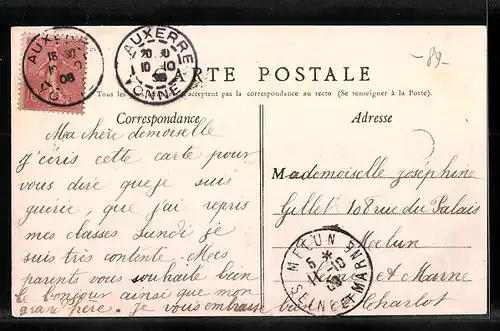 AUXERRE
YONNE
08
AUXERRE
20 10
10 10
08
YONNE
-89-
CARTE POSTALE
Tous les acceptent pas la correspondance au recto (Se renseigner à la Poste).
Correspondance
Adresse
Ma chère demoiselle
J'écris cette carte pour
vous dire que je suis
guérie, que j'ai repris
mes classes lundi je
suis très contente. Mes
parents vous souhaite bien
le bonjour ainsi que mon
grand'père. Je vous embrasse bien
Mademoiselle Joséphine
Gillet 108 rue du Palais
Melun
et Marne
Charlot
MELUN
SEINE ET MARNE